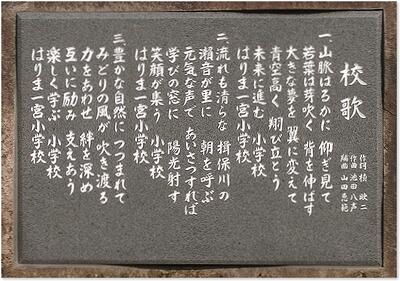 校歌
作詞 植 政二
作曲 池田八声
編曲 山田恵範
一、山脈はるかに 仰ぎ見て
若葉は芽吹く 背を伸ばす
大きな夢を 翼に変えて
青空高く 翔び立とう
未来に進む 小学校
はりま一宮小学校
二、流れも清らな 揖保川の
瀬音が里に 朝を呼ぶ
元気な声で あいさつすれば
学びの窓に 陽光射す
笑顔が集う 小学校
はりま一宮小学校
三、豊かな自然に つつまれて
みどりの風が 吹き渡る
力をあわせ 絆を深め
互いに励み 支えあう
楽しく学ぶ 小学校
はりま一宮小学校